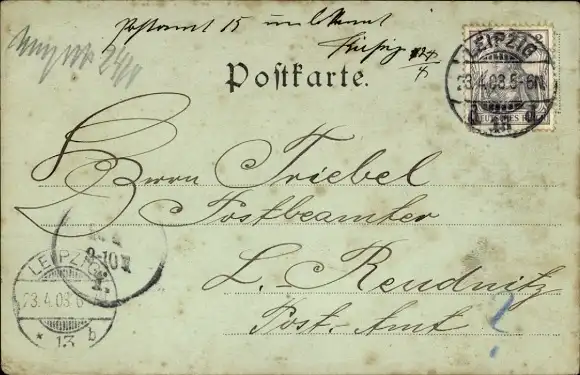 Postamt 15 unbekannt
Leipzig
Postkarte.
LEIPZIG
23.4.03.5-6N.
2
DEUTSCHES REICH
Herrn Triebel
Postbeamter
L. Reudnitz
Post-Amt
8-10
LEIPZIG
23.4.03.6
* 13 b